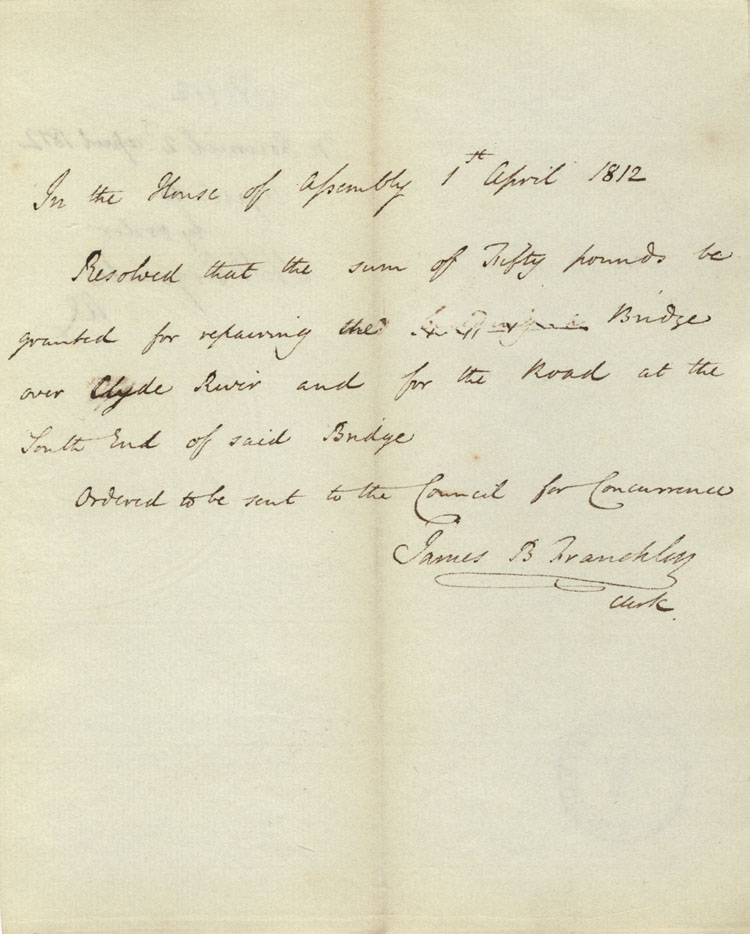 In the House of Assembly 1th April 1812
Resolved that the sum of Fifty pounds be
granted for repairing the Bridge
over Clyde River and for the Road at the
South End of said Bridge
Ordered to be sent to the Council for Concurrence
James B Franchlin
Clerk.